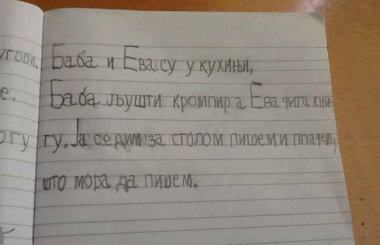 угови.
е.
огу
Баба и Ева су у кухињи,
Баба љушти кромпир а Ева чига књи-
гу. Ја седим за столом пишем и плачем,
што мора да пишем.